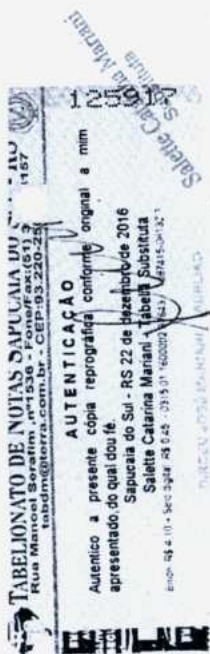 TABELIONATO DE NOTAS SAPUCAIA DO
Rua Manoel Serafim, nº1536 - Fone/Fax:(51) 3
157
tabdm@terra.com.br - CEP:93.220-25
125917
AUTENTICAÇÃO
Autentico a presente cópia reprográfica conforme original a mim
apresentado, do qual dou fé.
Sapucaia do Sul - RS 22 de dezembro de 2016
Salette Catarina Mariani - Tabeliã Substituta
Emol: R$ 4,10 - Selo digital: R$ 0,45 -
Salette Catarina Mariani
Substituta